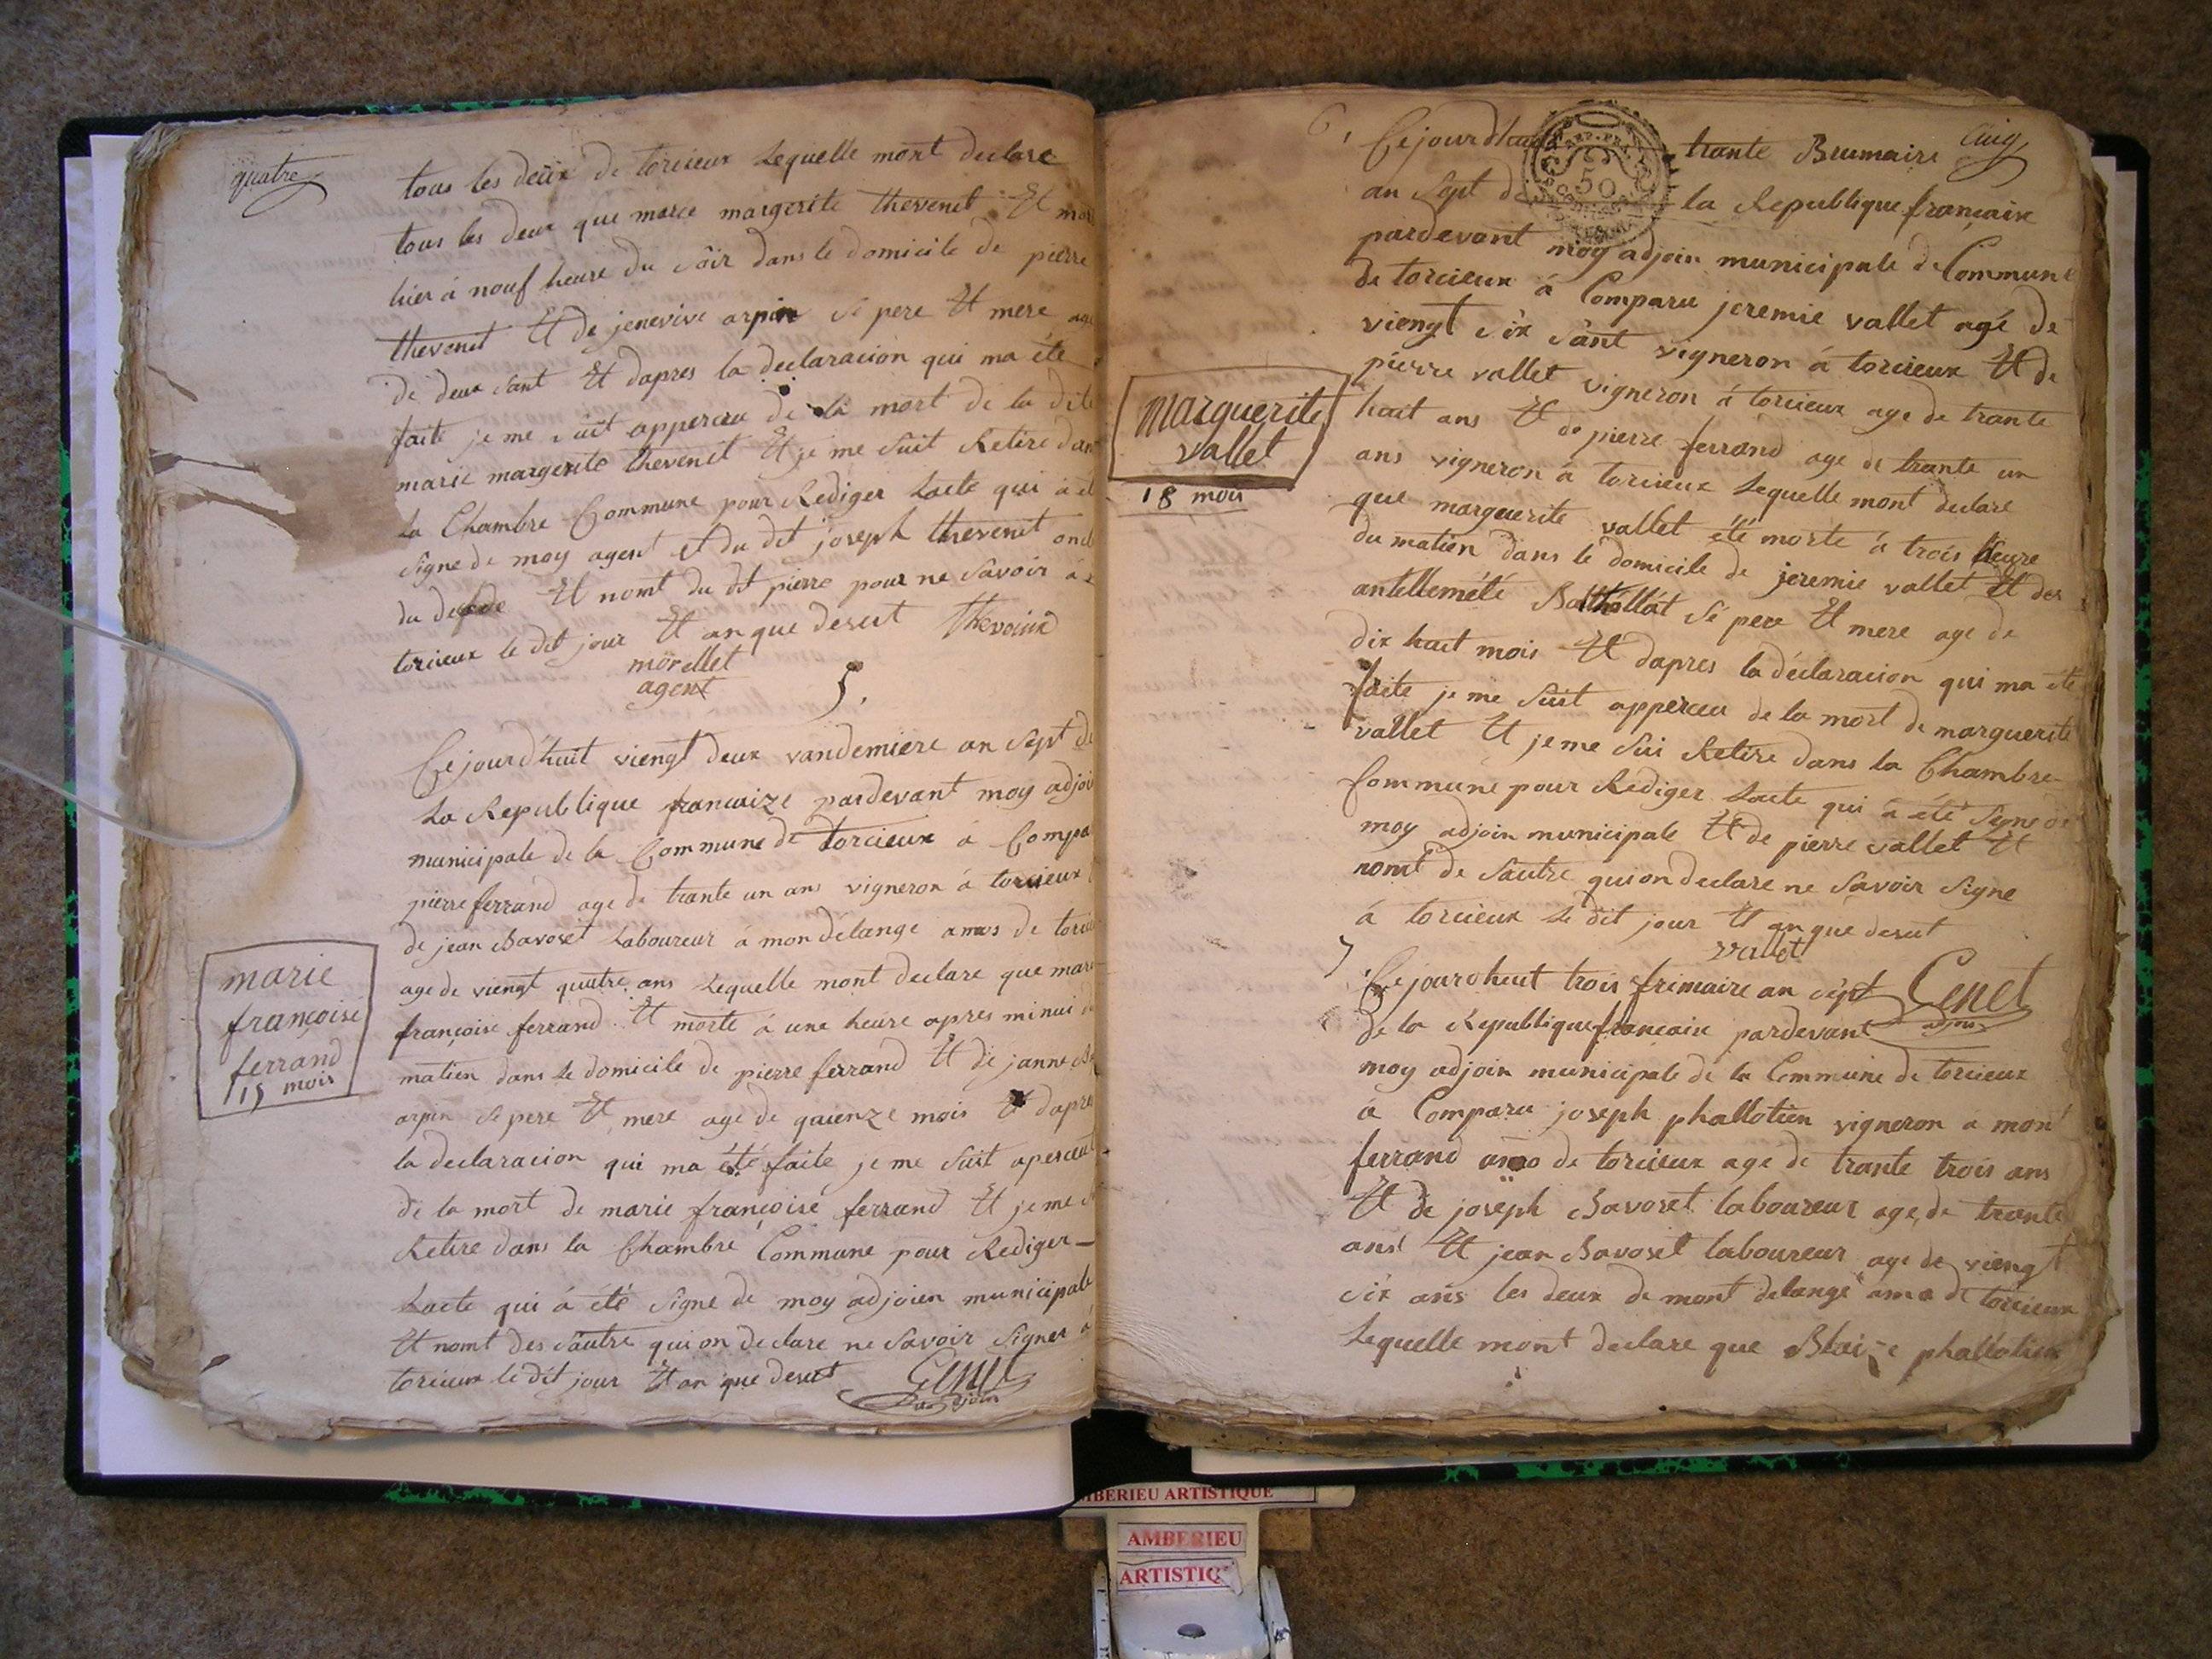 quatre
tous les deux de torcieux Lequelle mont declare
tous les deux que marie margerite thevenet Et mort
hier à nouf heure du soir dans le domicile de pierre
thevenet Et de jenevive arpin se pere Et mere age
de deux sant Et dapres la declaracion qui ma été
faite je me suit apperceu de la mort de la dite
marie margerite thevenet Et je me suit Retire dan
la Chambre Commune pour Rediger Lacte qui à et
signe de moy agent et du dit joseph thevenet oncle
du Et nomt du dt pierre pour ne savoir à
torcieux le dit jour Et an que desut
morellet
agent
5.
Cejourd'huit viengt deux vandemiere an sept de
La Republique francaize pardevant moy adjoin
municipale de la Commune de torcieux à Compa
pierre ferrand age de trante un ans vigneron à torcieux
de jean Bavoset Laboureur à mon delange amos de torcie
age de viengt quatre ans Lequelle mont declare que marie
françoise ferrand Et morte à une heure apres minui du
matien dans Le domicile de pierre ferrand Et de janne
arpin se pere Et mere age de quienze mois Et dapres
la declaracion qui ma été faite je me suit aperceut
de la mort de marie françoise ferrand Et je me
Retire dans la Chambre Commune pour Rediger
Lacte qui à été signe de moy adjoien municipale
Et nomt des sautre qui on declare ne savoir signer à
torcieux le dit jour Et an que desut
Genet
adjoin
marie
françoise
ferrand
15 mois
6,
Cejourdhuit trante Brumaire
an sept de la Republique françaixe
pardevant moy adjoin municipale de Commune
de torcieux à Comparu jeremie vallet agé de
viengt six sant vigneron à torcieux Et de
pierre vallet vigneron à torcieux age de trante
huit ans Et de pierre ferrand age de trante un
ans vigneron à torcieux Lequelle mont declare
que marguerite vallet été morte à trois heure
du matien dans le domicile de jeremie vallet Et der
se pere Et mere age de
dix huit mois Et dapres la déclaracion qui ma été
faite je me suit apperceu de la mort de marguerite
vallet Et je me sui Retire dans la Chambre
Commune pour Rediger Lacte qui à été signe de
moy adjoin municipale Et de pierre vallet Et
nomt de sautre qui on declare ne savoir signe
à torcieux Le dit jour Et an que desut
vallet
Genet
adjoin
marguerite
vallet
18 mois
50
7
Cejourdheut trois frimaire an sept
de la Republique francaixe pardevant
moy adjoin municipale de la Commune de torcieux
à Comparu joseph phallotien vigneron à mont
ferrand de torcieux age de trante trois ans
Et de joseph Bavoset laboureur age de trante
ans Et jean Bavoset laboureur age de viengt
six ans les deux de mont delange de torcieux
Lequelle mont declare que Blaize phallotien
AMBERIEU ARTISTIQUE
AMBERIEU
ARTISTIQ